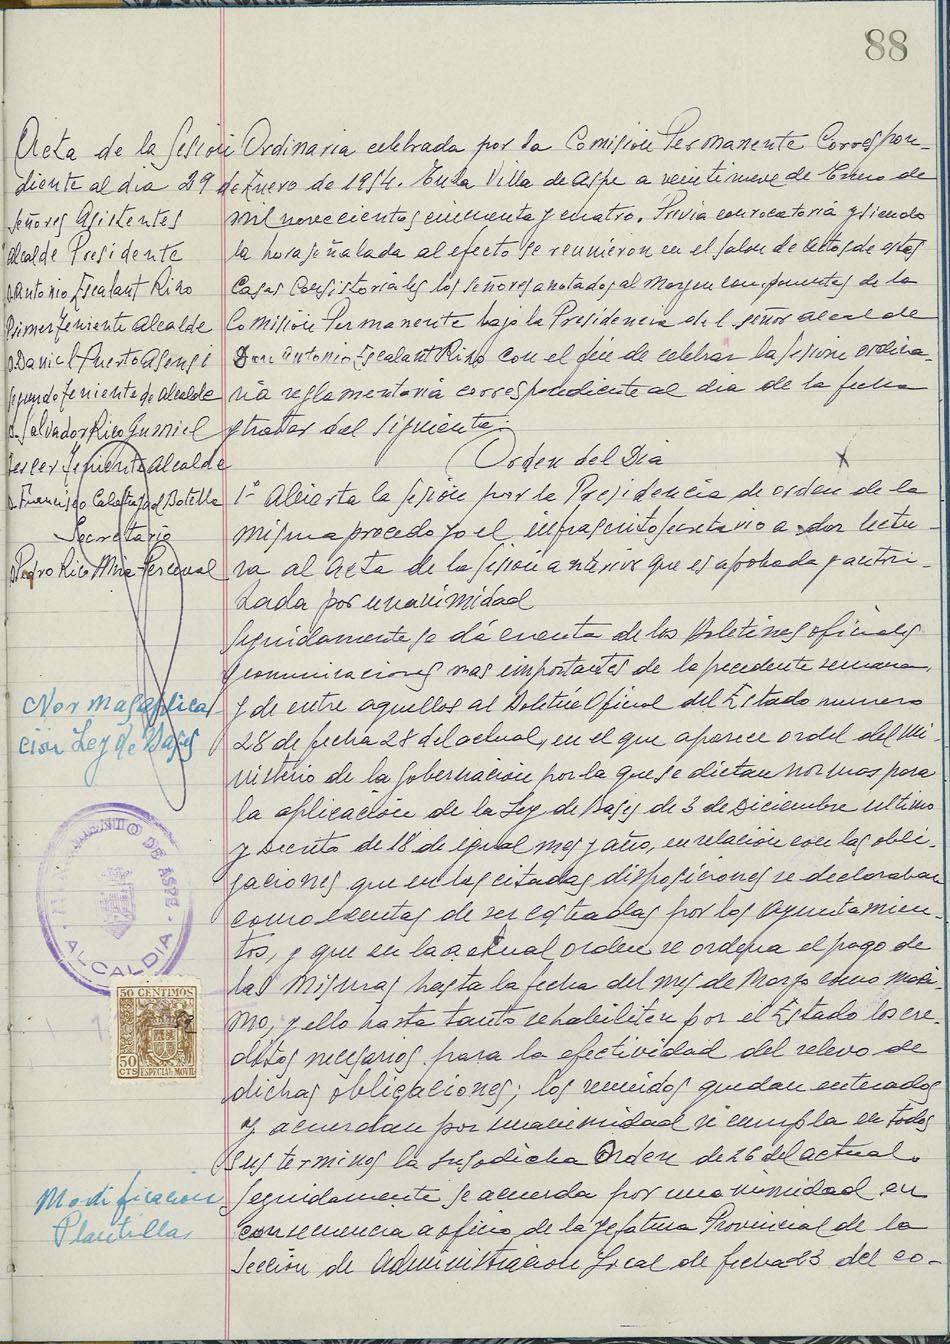 88
Acta de la Sesión Ordinaria celebrada por la Comisión Permanente Correspon-
diente al dia 29 de Enero de 1954. En la Villa de Aspe a veintinueve de Enero de
Señores Asistentes
Alcalde Presidente
D. Antonio Escalant Rizo
Primer Teniente Alcalde
D. Daniel Puerto Asensi
Segundo Teniente de Alcalde
D. Salvador Rico Gumiel
Tercer Teniente Alcalde
D. Francisco Calatayud Botella
Secretario
D. Pedro Rico Mira-Perceval
mil novecientos cincuenta y cuatro. Previa convocatoria y siendo
la hora señalada al efecto se reunieron en el Salon de actos de estas
Casas Consistoriales los señores anotados al margen componentes de la
Comisión Permanente bajo la Presidencia del señor alcalde
Don Antonio Escalant Rizo con el fin de celebrar la sesión ordina-
ria reglamentaria correspondiente al dia de la fecha
y tratar del siguiente:
Orden del Dia
1º Abierta la sesión por la Presidencia de orden de la
misma procedo yo el infrascrito secretario a dar lectu-
ra al Acta de la sesión anterior que es aprobada y autori-
zada por unanimidad
Seguidamente se dá cuenta de los Boletines oficiales
y comunicaciones mas importantes de la precedente semana,
Normas aplica-
ción Ley de Bases
y de entre aquellos al Boletín Oficial del Estado numero
28 de fecha 28 del actual, en el que aparece orden del Mi-
nisterio de la Gobernación por la que se dictan normas para
la aplicación de la Ley de Bases de 3 de Diciembre ultimo
y Decreto de 18 de igual mes y año, en relación con las obli-
gaciones que en las citadas disposiciones se declaraban
como exentas de ser costeadas por los Ayuntamien-
tos, y que en la actual orden se ordena el pago de
las mismas hasta la fecha del mes de Marzo como máxi-
mo, y ello hasta tanto se habiliten por el Estado los cre-
ditos necesarios para la efectividad del relevo de
dichas obligaciones; los reunidos quedan enterados
y acuerdan por unanimidad se cumpla en todos
sus terminos la susodicha Orden de 26 del actual.
AYUNTAMIENTO DE ASPE
ALCALDIA
50 CENTIMOS
50 CTS
ESPECIAL MOVIL
Modificacion
Plantillas
Seguidamente se acuerda por unanimidad en
consecuencia a oficio de la Jefatura Provincial de la
Sección de Administración Local de fecha 23 del co-